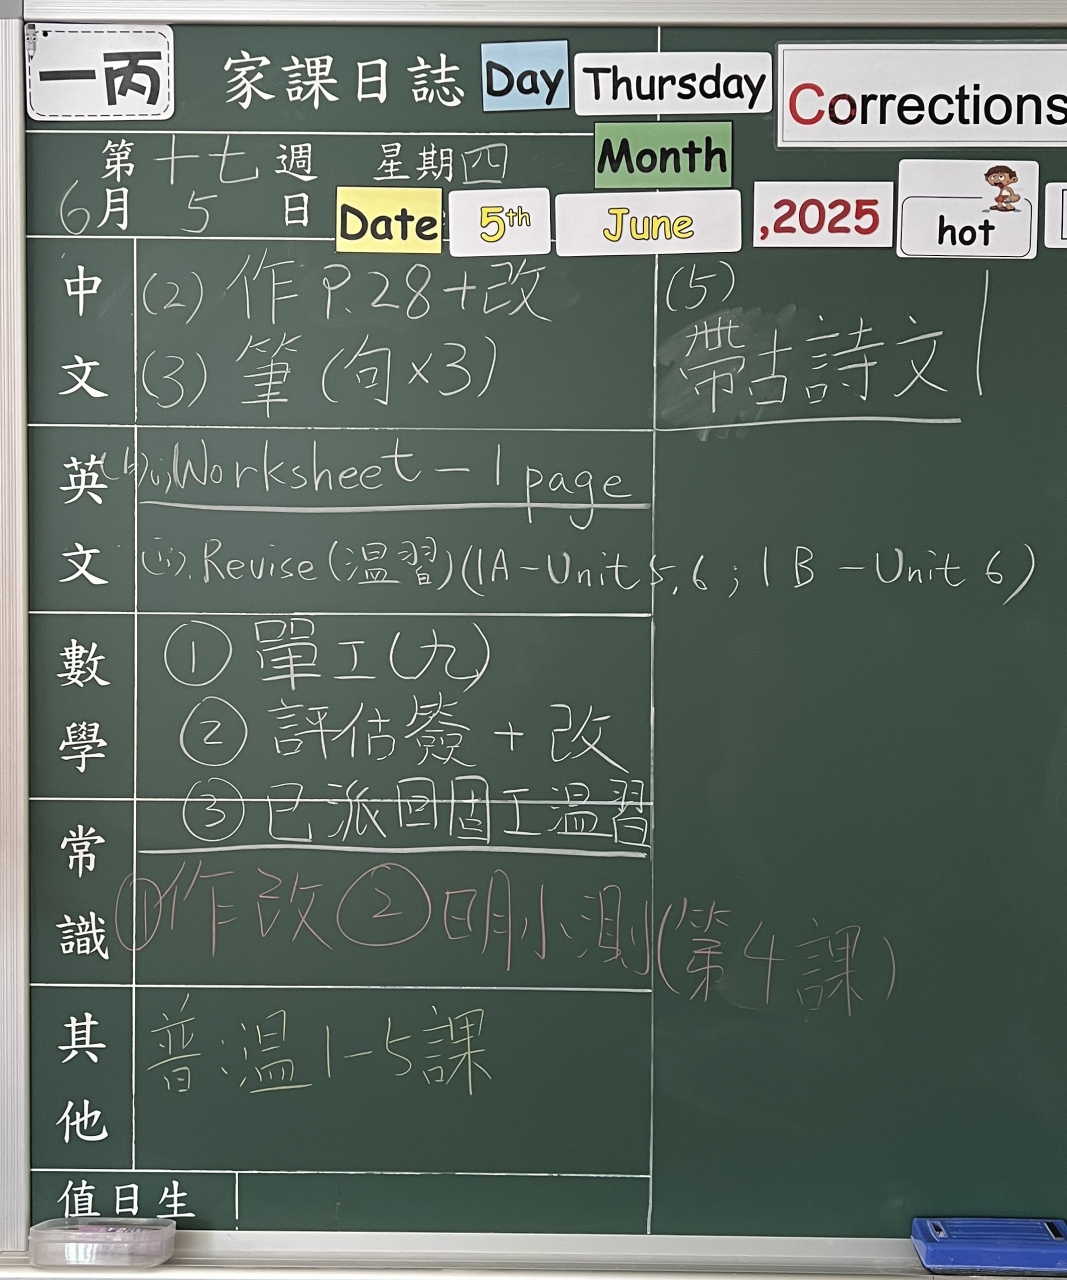 一丙 家課日誌 Day Thursday Corrections
第十七週 星期四 Month
6月5日 Date 5th June ,2025 hot
中文 (2) 作 P.28+改 (5)
(3) 筆 (句×3) 帶古詩文
英文 (i) Worksheet - 1 page
(ii). Revise (溫習) (1A - Unit 5,6 ; 1B - Unit 6)
數學 ① 單工(九)
② 評估簽 + 改
③ 已派回固工溫習
常識 ①作改 ②明小測(第4課)
其他 普:溫1-5課
值日生